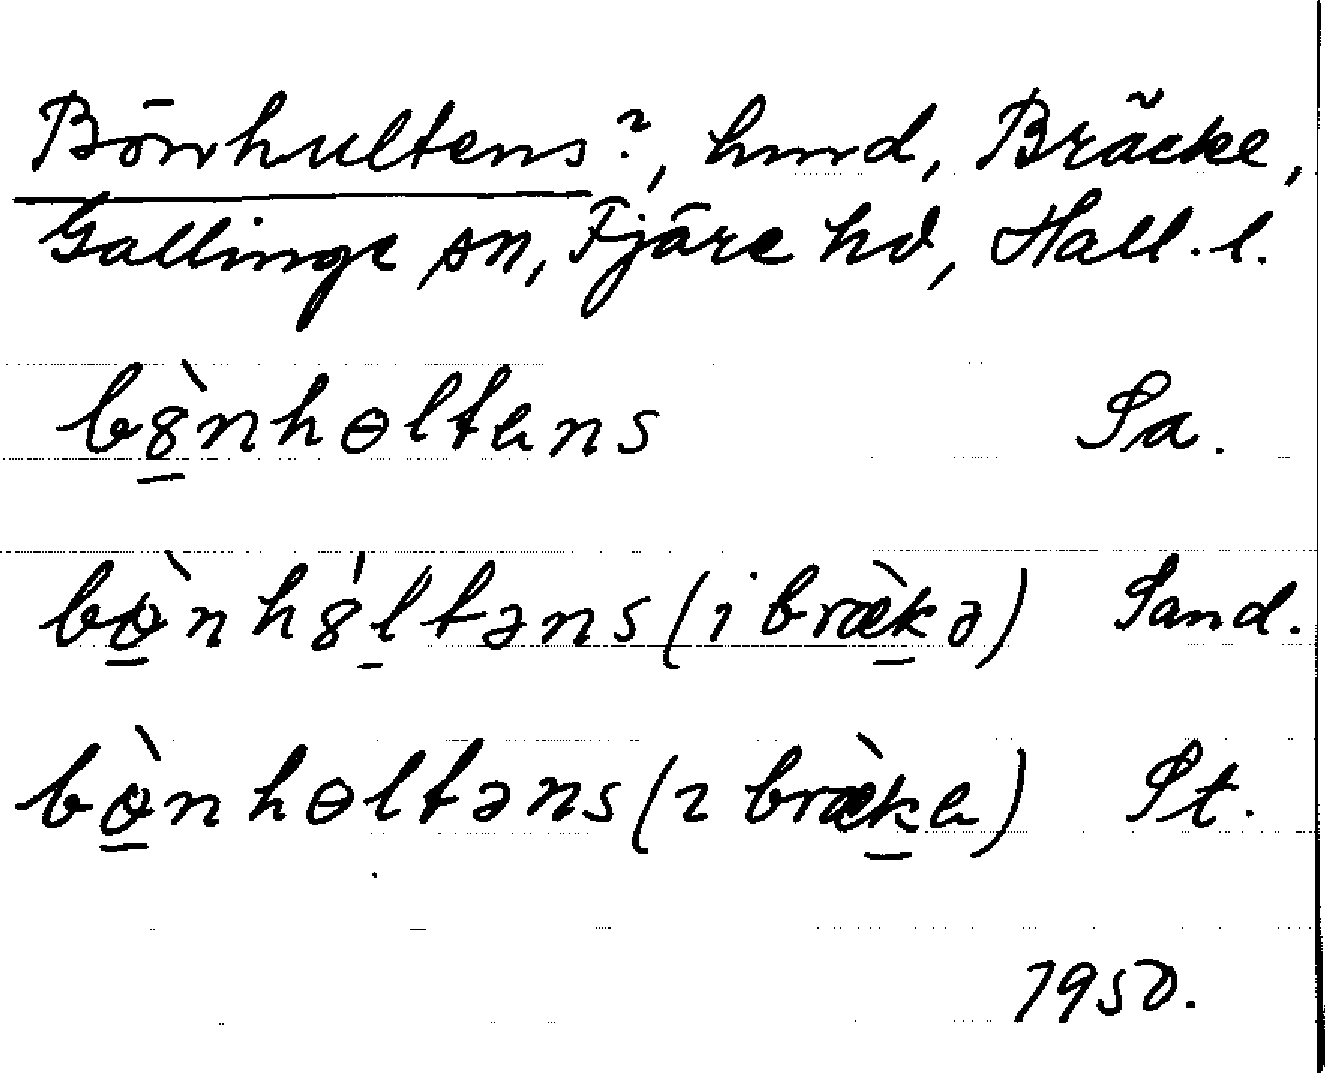 Bönhultens?, hmd, Bräcke,
Gällinge sn, Fjäre hd, Hall. l.
bȣ̠̀nhɵltens Sa.
bɵ̠̀nhȣ̠́ltəns (i bræ̀k̠ə) Sand.
bɵ̠̀nhɵltəns (ɪ bræ̀k̠e) St.
1950.